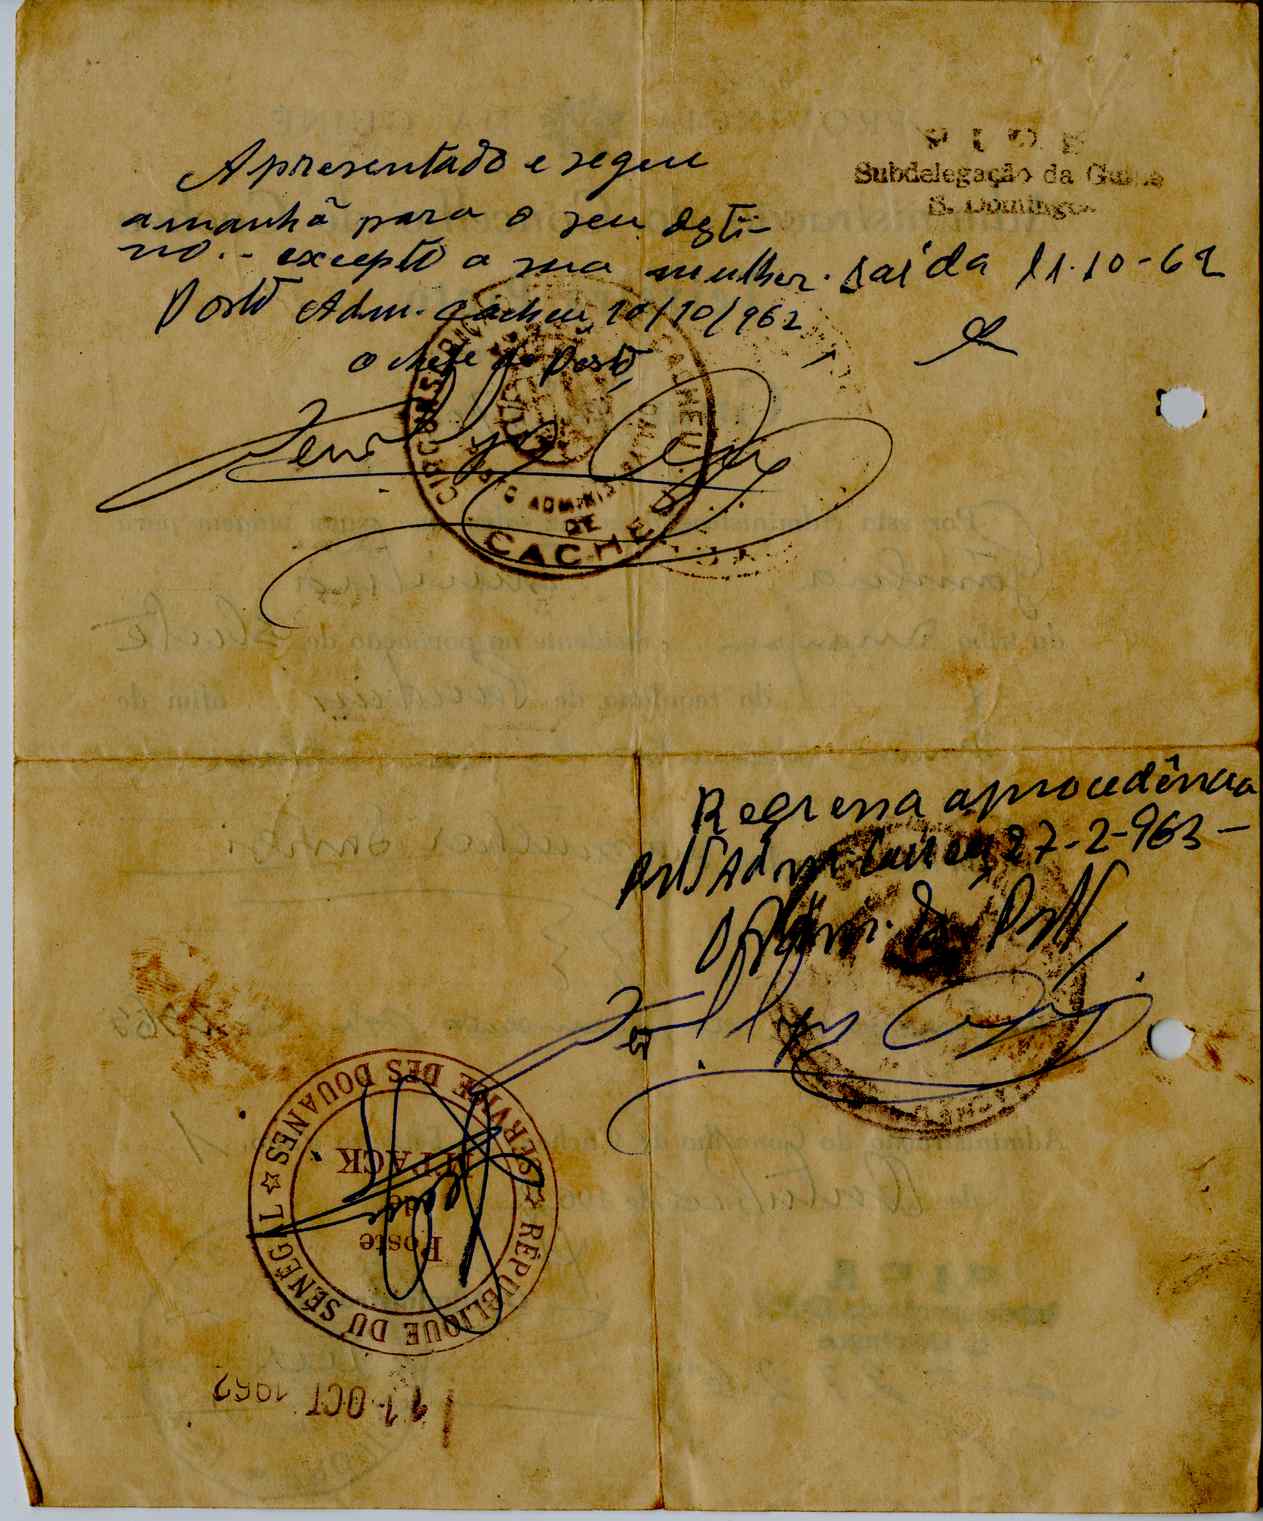 P I D E
Subdelegação da Guiné
S. Domingos
Apresentado e segue
amanhã para o seu desti-
no. - excepto a sua mulher.
Saída 11-10-62
Posto Adm. Cacheu 10/10/962
O Chefe do Posto
CIRCUNSCRIÇÃO CACHEU
POSTO ADMINISTRATIVO
DE
CACHEU
Regressa a procedência
Posto Adm. Cacheu, 27-2-963-
do Posto
RÉPUBLIQUE DU SÉNÉGAL ☆ SERVICE DES DOUANES ☆
Poste
de
MPACK
11 OCT 1962